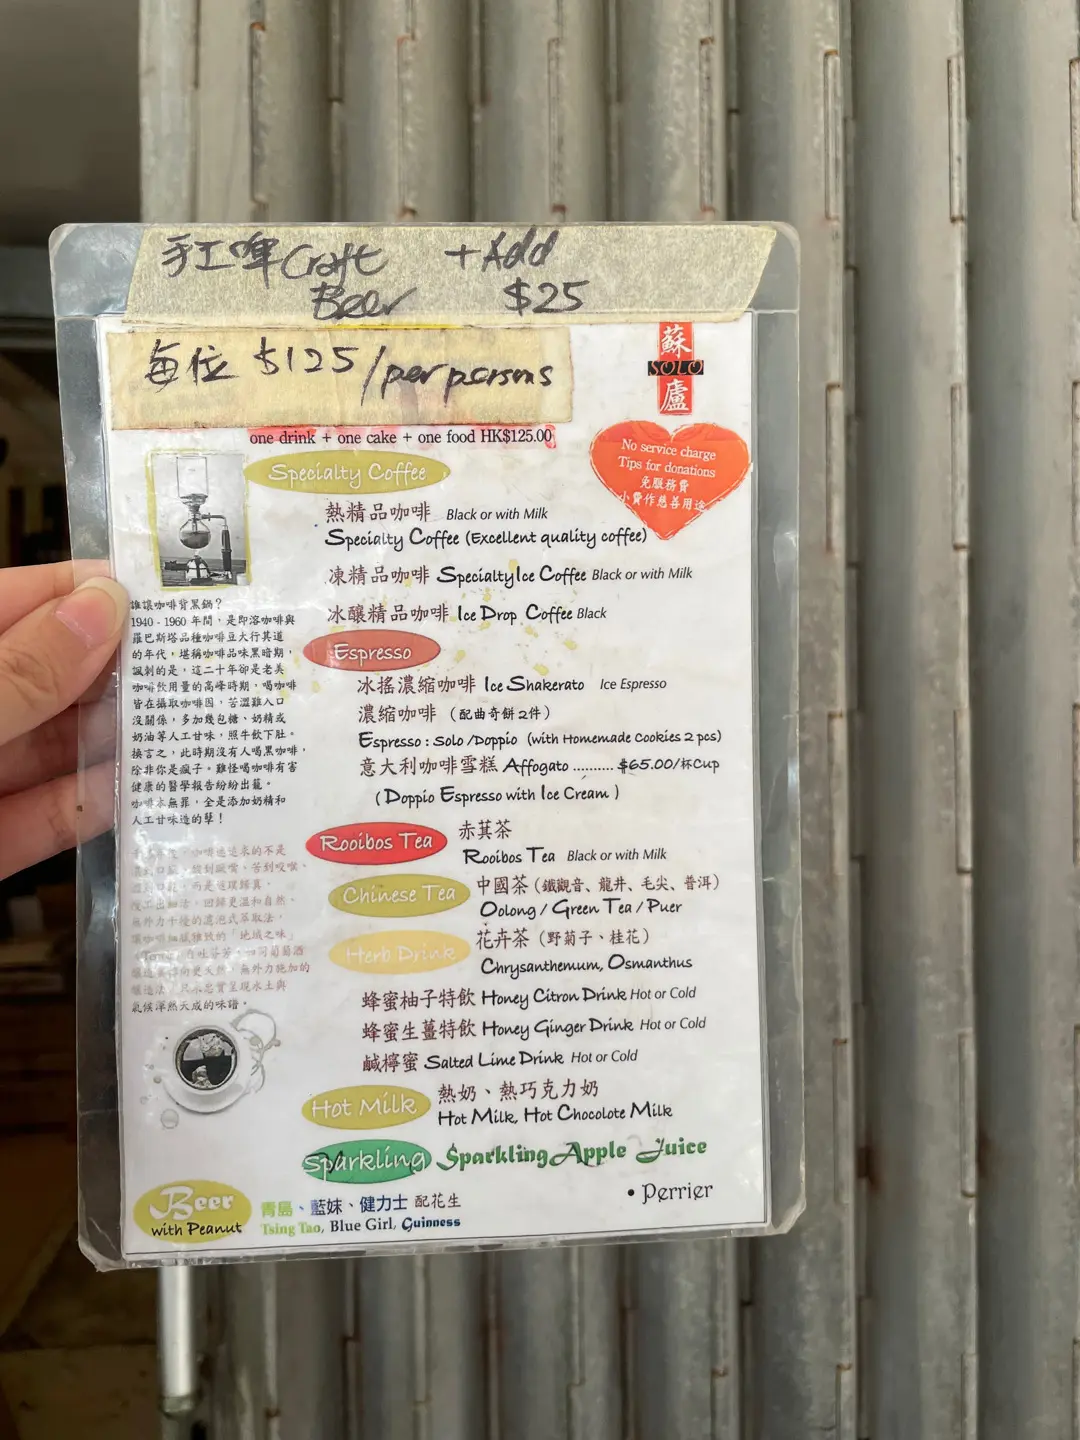 手工啤 Craft Beer + Add $25
每位 $125/per persons
蘇
SOLO
廬
one drink + one cake + one food HK$125.00
No service charge
Tips for donations
免服務費
小費作慈善用途
Specialty Coffee
熱精品咖啡 Black or with Milk
Specialty Coffee (Excellent quality coffee)
凍精品咖啡 Specialty Ice Coffee Black or with Milk
冰釀精品咖啡 Ice Drop Coffee Black
Espresso
冰搖濃縮咖啡 Ice Shakerato Ice Espresso
濃縮咖啡 (配曲奇餅2件)
Espresso : Solo /Doppio (with Homemade Cookies 2 pcs)
意大利咖啡雪糕 Affogato .......... $65.00/杯Cup
( Doppio Espresso with Ice Cream )
Rooibos Tea 赤萁茶
Rooibos Tea Black or with Milk
Chinese Tea 中國茶 (鐵觀音、龍井、毛尖、普洱)
Oolong / Green Tea / Puer
Herb Drink 花卉茶 (野菊子、桂花)
Chrysanthemum, Osmanthus
蜂蜜柚子特飲 Honey Citron Drink Hot or Cold
蜂蜜生薑特飲 Honey Ginger Drink Hot or Cold
鹹檸蜜 Salted Lime Drink Hot or Cold
Hot Milk 熱奶、熱巧克力奶
Hot Milk, Hot Chocolote Milk
Sparkling Sparkling Apple Juice
• Perrier
Beer
with Peanut
青島、藍妹、健力士 配花生
Tsing Tao, Blue Girl, Guinness
誰讓咖啡背黑鍋？
1940 - 1960 年間，是即溶咖啡與
羅巴斯塔品種咖啡豆大行其道
的年代，堪稱咖啡品味黑暗期，
諷刺的是，這二十年卻是老美
咖啡飲用量的高峰時期，喝咖啡
皆在攝取咖啡因，苦澀難入口
沒關係，多加幾包糖、奶精或
奶油等人工甘味，照牛飲下肚。
換言之，此時期沒有人喝黑咖啡，
除非你是瘋子。難怪喝咖啡有害
健康的醫學報告紛紛出籠。
咖啡本無罪，全是添加奶精和
人工甘味造的孽！
咖啡追逐來的不是
酸到噘嘴、苦到咬喉、
而是返璞歸真，
回歸更溫和自然、
無外力干擾的濾泡式萃取法，
讓咖啡細膩雅致的「地域之味」
如同葡萄酒
更天然，無外力施加的
釀造法，忠實呈現水土與
氣候渾然天成的味譜。